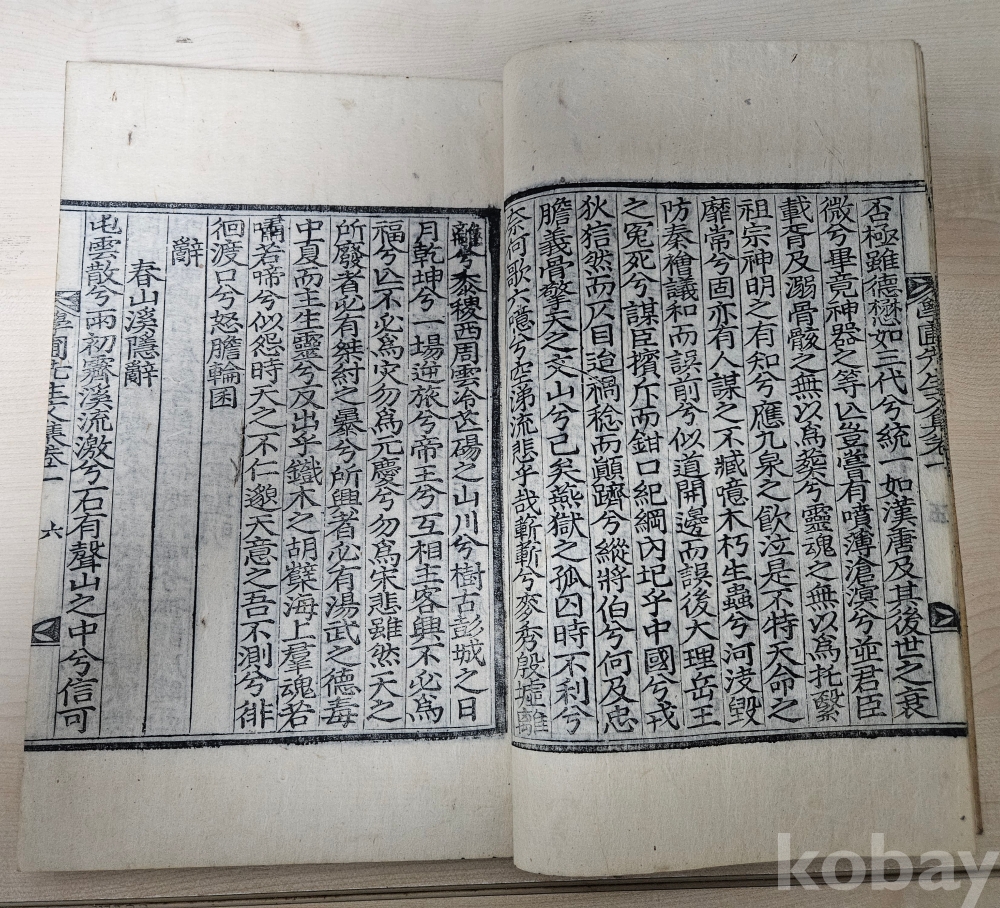 否極雖德懋如三代兮統一如漢唐及其後世之衰
微兮畢竟神器之等亾豈嘗有噴薄滄溟兮並君臣
載胥及溺骨骸之無以爲葬兮靈魂之無以爲托繄
祖宗神明之有知兮應九泉之飮泣是不特天命之
靡常兮固亦有人謀之不臧噫木朽生蟲兮河淺毁
防秦檜議和而誤前兮似道開邊而誤後大理岳王
之冤死兮謀臣擯斥而鉗口紀綱內圮乎中國兮戎
狄狺然而以目迨禍稔而顚躋兮縱將伯兮何及忠
膽義骨擎天之文山兮已矣燕獄之孤囚時不利兮
奈何歌六噫兮空涕流悲乎哉蘄蘄兮麥秀殷墟離
離兮黍稷西周雲冷芒碭之山川兮樹古彭城之日
月乾坤兮一場逆旅兮帝王兮互相主客興不必爲
福兮亾不必爲灾勿爲元慶兮勿爲宋悲雖然天之
所廢者必有桀紂之暴兮所興者必有湯武之德毒
中夏而主生靈兮反出乎鐵木之胡孼海上羣魂若
嘯若啼兮似怨時天之不仁邈天意之吾不測兮徘
徊渡口兮怒膽輪囷
辭
春山溪隱辭
屯雲散兮雨初霽溪流激兮石有聲山之中兮信可
學圃先生文集卷一
六
kobay